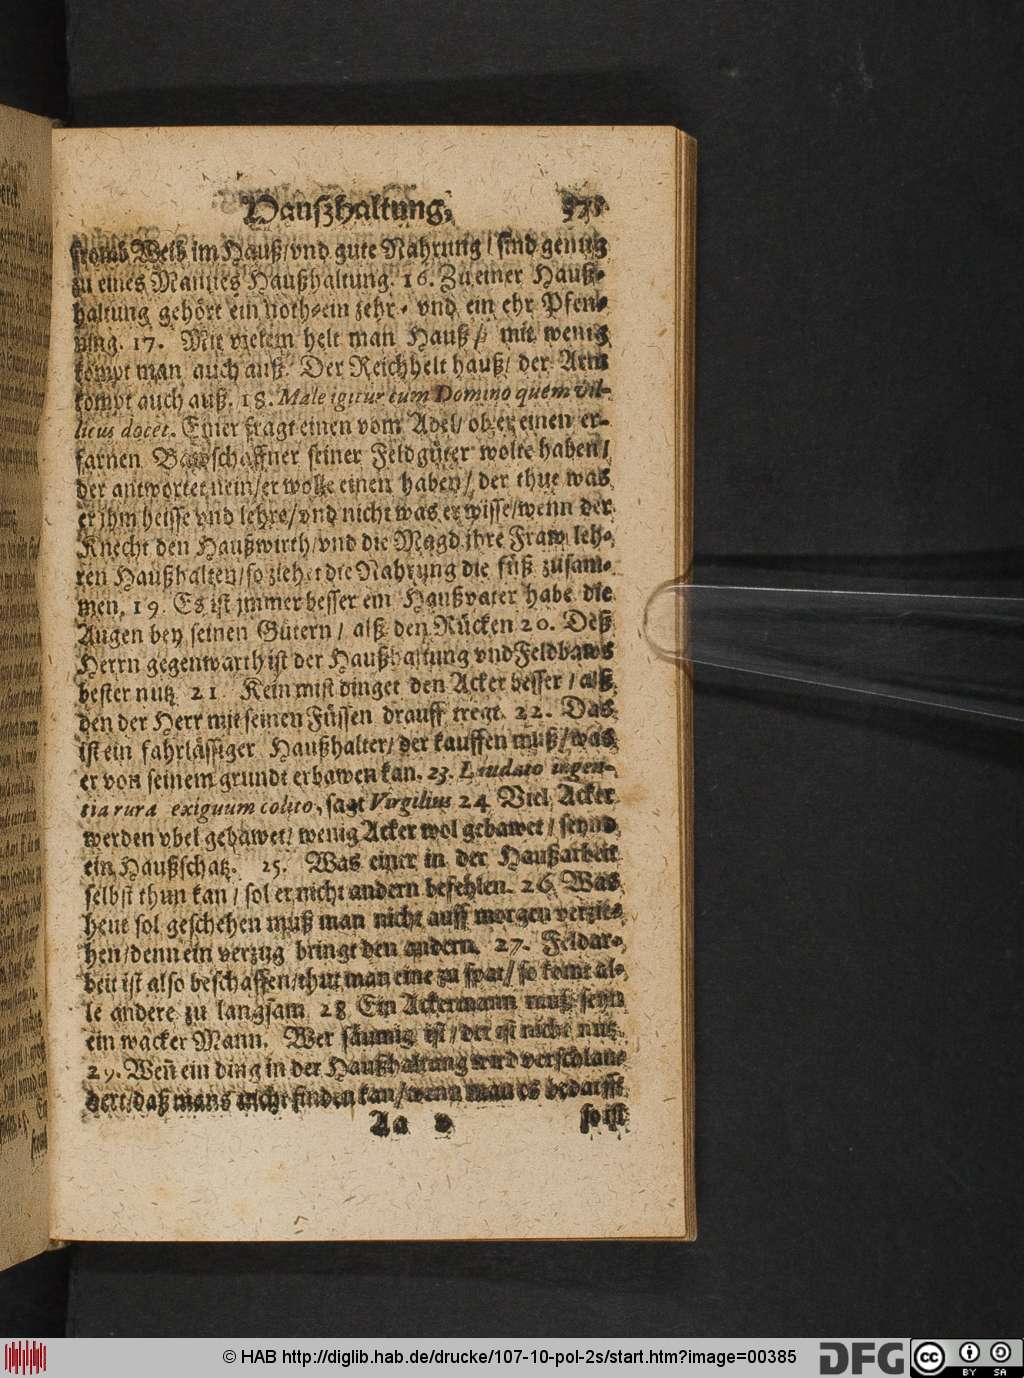 Haußhaltung,
fromb Weib im Hauß/vnd gute Nahrung/sind genug
zu eines Mannes Haußhaltung. 16. Zu einer Hauß-
haltung gehört ein noth-ein zehr- vnd ein ehr Pfen-
ning. 17. Mit vielem helt man Hauß/ mit wenig
kompt man auch auß. Der Reich helt hauß/ der Arm
kompt auch auß. 18. Male igitur cum Domino quem vil-
licus docet. Einer fragt einen vom Adel/ ob er einen er-
farnen Bawschaffner seiner Feldgüter wolte haben/
der antwortet nein/er wolte einen haben/ der thue was
er jhm heisse vnd lehre/vnd nicht was er wisse/wenn der
Knecht den Haußwirth/vnd die Magd jhre Fraw leh-
ren Haußhalten/so ziehet die Nahrung die füß zusam-
men. 19. Es ist jmmer besser ein Haußvater habe die
Augen bey seinen Gütern/ alß den Rücken 20. Deß
Herrn gegenwarth ist der Haußhaltung vnd Feldbaws
bester nutz. 21. Kein mist dinget den Acker besser/ alß
den der Herr mit seinen Füssen drauff tregt. 22. Das
ist ein fahrlässiger Haußhalter/ der kauffen muß/was
er von seinem grundt erbawen kan. 23. Laudato ingen-
tia rura exiguum colito, sagt Virgilius 24 Viel Acker
werden vbel gebawet/ wenig Acker wol gebawet/ seynd
ein Haußschatz. 25. Was einer in der Haußarbeit
selbst thun kan/ sol er nicht andern befehlen. 26. Was
heut sol geschehen muß man nicht auff morgen verzie-
hen/denn ein verzug bringt den andern. 27. Feldar-
beit ist also beschaffen/thut man eine zu spat/ so komt al-
le andere zu langsam 28 Ein Ackermann muß seyn
ein wacker Mann. Wer säumig ist/der ist nicht nutz.
29. Weñ ein ding in der Haußhaltung wird verschlau-
dert/daß mans nicht finden kan/wenn man es bedarfft
Aa so ist
© HAB http://diglib.hab.de/drucke/107-10-pol-2s/start.htm?image=00385
DFG
cc BY SA